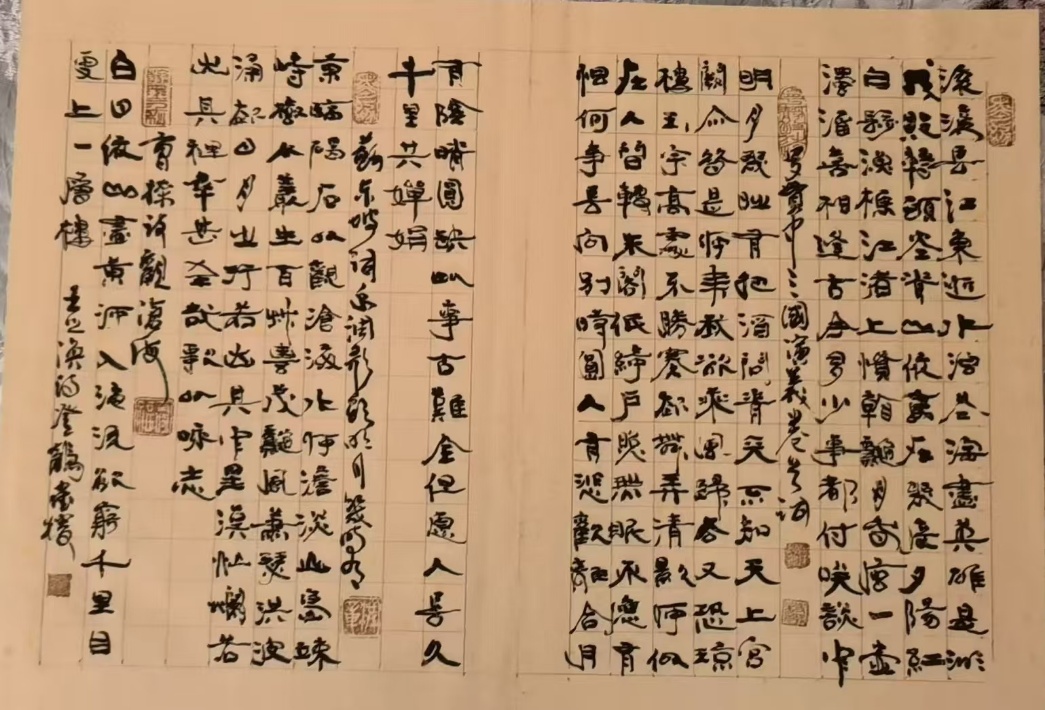 滚滚長江東逝水浪花淘盡英雄是非
成敗轉頭空青山依舊在幾度夕陽紅
白髮漁樵江渚上慣看秋月春風一壺
濁酒喜相逢古今多少事都付笑談中
羅貫中三國演義卷首詞
明月幾時有把酒問青天不知天上宮
闕今夕是何年我欲乘風歸去又恐瓊
樓玉宇高處不勝寒起舞弄清影何似
在人間轉朱閣低綺戶照無眠不應有
恨何事長向別時圓人有悲歡離合月
有陰晴圓缺此事古難全但愿人長久
千里共嬋娟
蘇東坡詞水調歌頭明月幾時有
東臨碣石以觀滄海水何澹澹山島竦
峙樹木叢生百草豐茂秋風蕭瑟洪波
涌起日月之行若出其中星漢燦爛若
出其裡幸甚至哉歌以咏志
曹操詩觀滄海
白日依山盡黃河入海流欲窮千里目
更上一層樓 王之渙詩登鸛雀樓